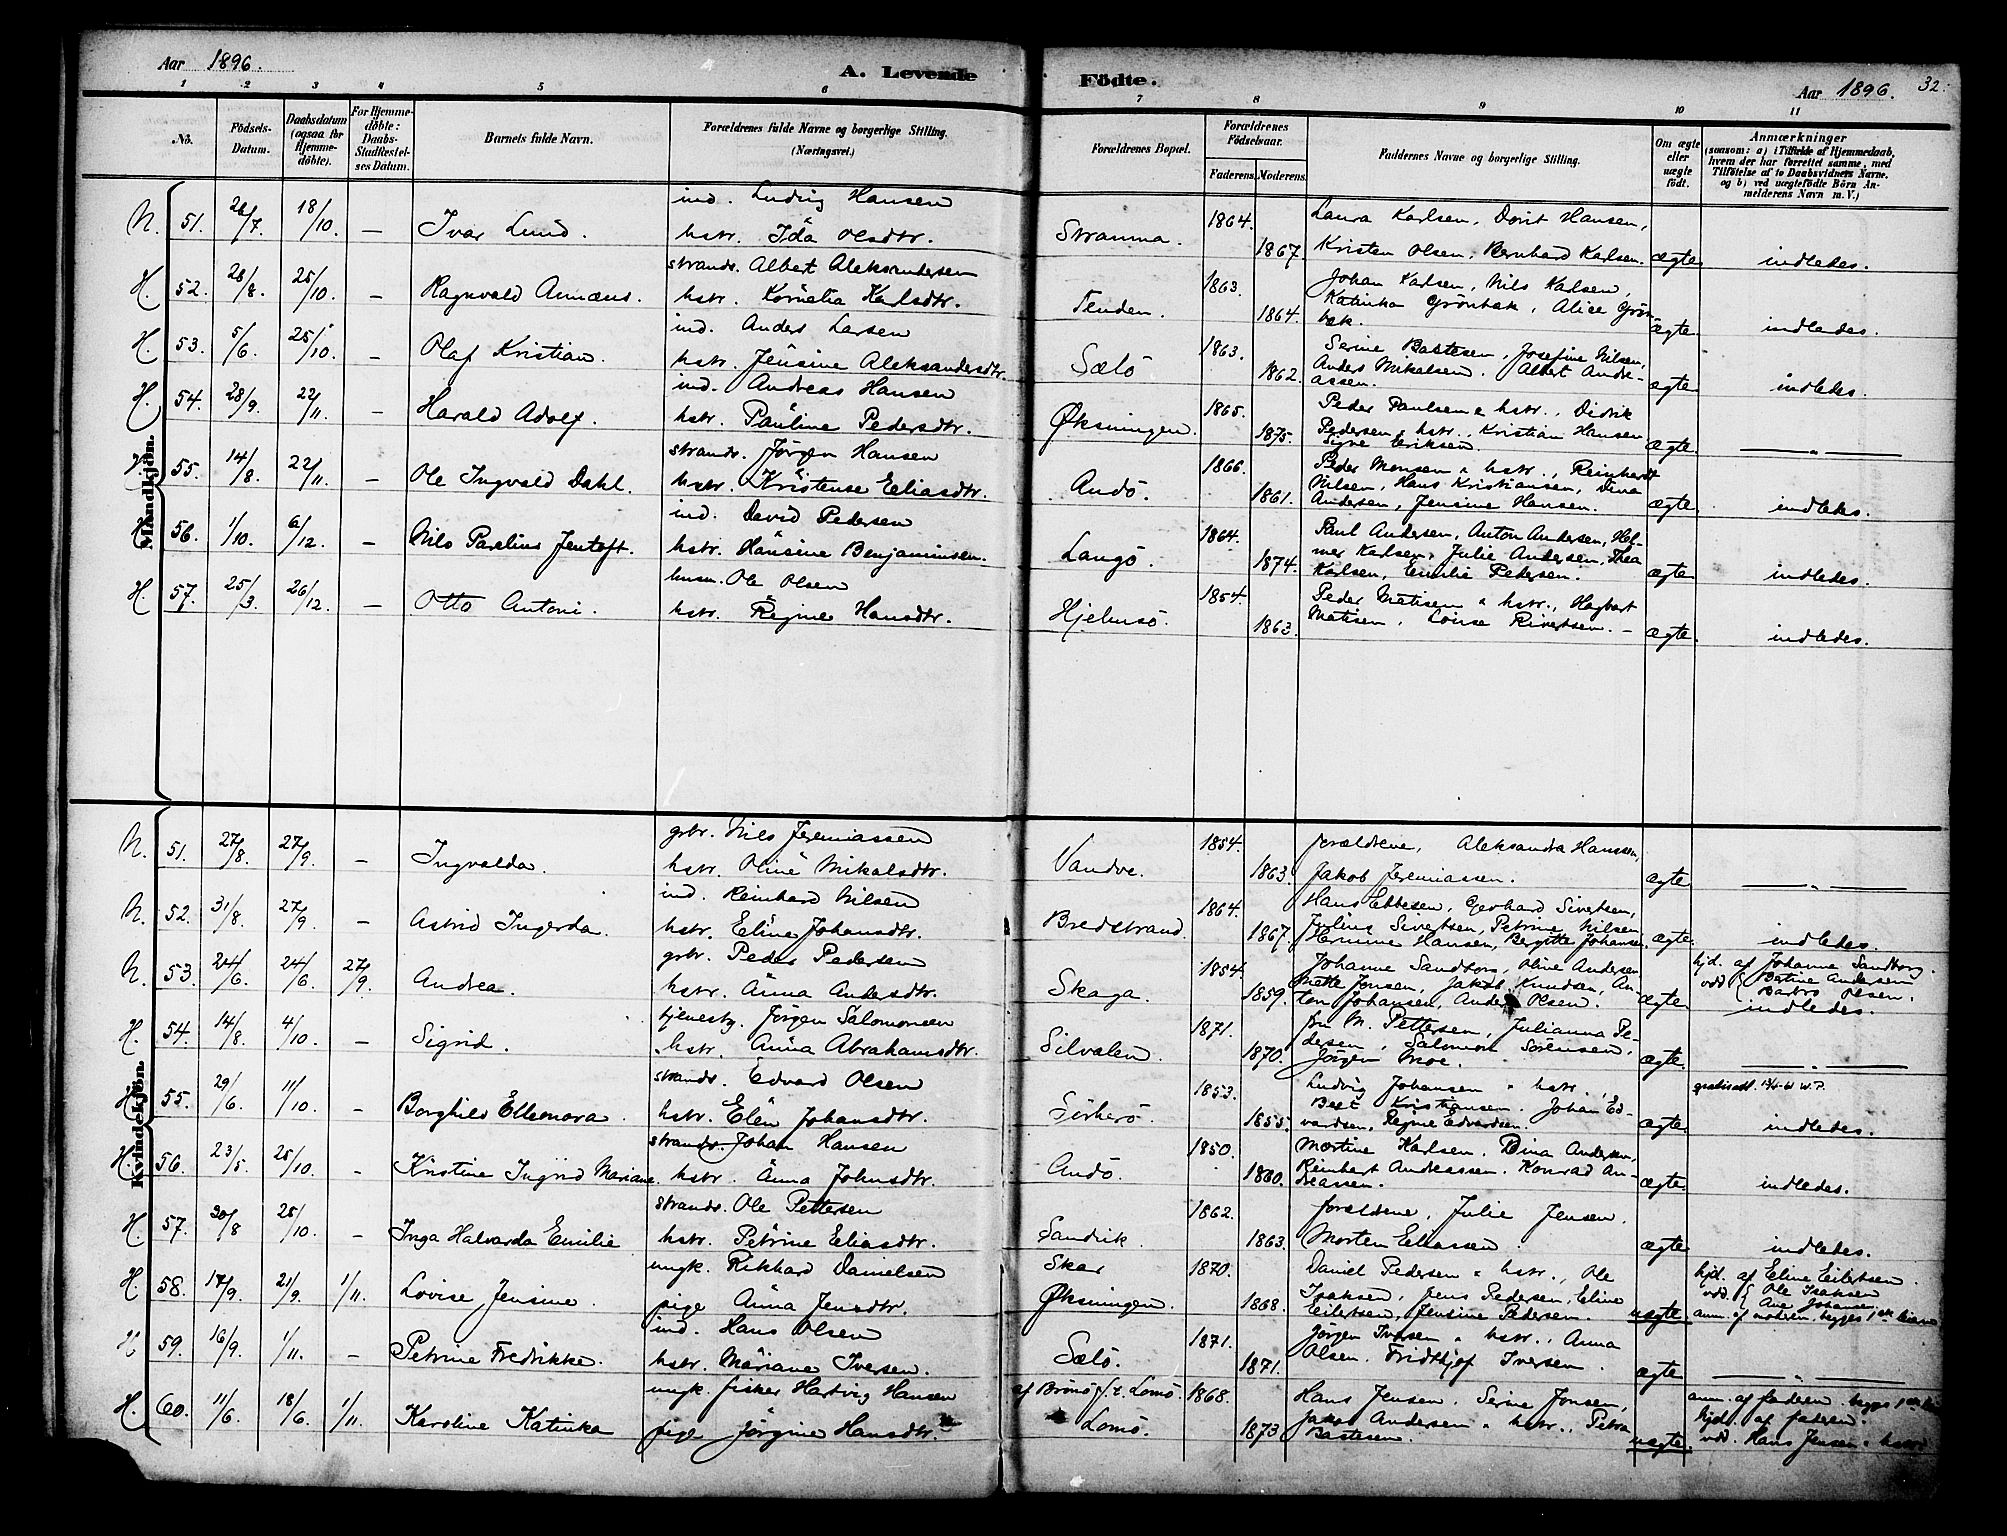 Aar 1896.
A. Levende Födte.
Aar 1896. 32.
1 2 3 4 5 6 7 8 9 10 11
No.
Födsels-Datum.
Daabsdatum (ogsaa for Hjemmedöbte).
For Hjemmedöbte: Daabs-Stadfestelses Datum.
Barnets fulde Navn.
Forældrenes fulde Navne og borgerlige Stilling. (Næringsvei.)
Forældrenes Bopæl.
Forældrenes Födselsaar.
Faderens. Moderens.
Faddernes Navne og borgerlige Stilling.
Om ægte eller uægte födt.
Anmærkninger
(saasom: a) i Tilfælde af Hjemmedaab,
hvem der har forrettet samme, med
Tilföielse af to Daabsvidners Navne.
og b) ved uægtefödte Börn An-
melderens Navn m. V.)
Mandkjön.
N. 51. 18/10. — Ivar Lund. ind. Ludvig Hansen
hstr. Ida Olsdtr. Stramma. 1864. 1867. Laura Karlsen, Dorit Hansen,
Kristen Olsen, Bernhard Karlsen. ægte indledes.
H. 52. 28/8. 25/10. — Ragnvald Annæus. strands. Albert Aleksandersen
hstr. Kornelia Karlsdtr. Tenden. 1863. 1864. Johan Karlsen, Nils Karlsen,
Katinka Grönbæk, Alice Grön-
bæk. ægte indledes.
H. 53. 5/6. 25/10. — Olaf Kristian. ind. Anders Larsen
hstr. Jensine Aleksandersdtr. Sælö 1863. 1862. Serine Bastesen, Josefine Nilsen,
Anders Mikalsen. Albert Andre-
assen. ægte indledes.
H. 54. 28/9. 22/11. — Harald Adolf. ind. Andreas Hansen
hstr. Pauline Pedersdtr. Øksningen. 1865. 1875. Peder Paulsen & hstr., Didrik
Pedersen, hstr., Kristian Hansen
Signe Eriksen. ægte — " —
55. 14/8. 22/11. — Ole Ingvald Dahl. strands. Jörgen Hansen
hstr. Kristense Eliasdtr. Andö. 1866. 1861. Peder Monsen & hstr., Reinhardt
Nilsen, Hans Kristiansen, Dina
Andersen, Jensine Hansen. ægte indledes.
56. 1/10. 6/12. — Nils Parelius Jentoft. ind. David Pedersen
hstr. Hansine Benjaminsen. Langö. 1864. 1874. Paul Andersen, Anton Andersen, Hel-
mer Karlsen, Julie Andersen, Thea
Karlsen, Emilie Pedersen. ægte indledes.
H. 57. 25/3. 26/12. — Otto Antoni. husm. Ole Olsen
hstr. Regine Hansdtr. Hjelmsö. 1854. 1863. Peder Matisen & hstr., Hagbart
Matisen, Louise Sivertsen. — ægte indledes.
Kvindekjön.
N. 51. 27/8. 27/9. — Ingvalda. grbr. Nils Jeremiassen
hstr. Oline Mikalsdtr. Vandve. 1854. 1863. forældrene, Aleksandra Hanssen,
Jakob Jeremiassen. ægte — " —
N. 52. 31/8. 27/9. — Astrid Ingerda. ind. Reinhard Nilsen
hstr. Eline Johansdtr. Bredstrand. 1864. 1867. Hans Ebbesen, Gerhard Sivertsen,
Julius Sivertsen, Petrine Nilsen
Hermine Hansen, Bergitte Johansen. ægte. indledes.
N. 53. 24/6. 24/6. 27/9. Andrea. grbr. Peder Pedersen
hstr. Anna Andersdtr. Skaga. 1854. 1859. Johanne Sandborg, Oline Andersen
Mette Jensen, Jakob Knudsen, An-
ton Johansen, Anders Olsen. ægte hjd. af Johanna Sandborg.
vdd. { Bertine Andersen
Barbro Olsen.
indledes.
H. 54. 14/8. 4/10. — Sigrid. tjenestg. Jörgen Salomonsen
hstr. Anna Abrahamsdtr. Silvalen. 1871. 1870. fru M. Pettersen, Julianna Pe-
dersen, Salomon Sörensen,
Jörgen Moe. ægte — " —
55. 29/6. 11/10. — Borghild Elleonora. strands. Edvard Olsen
hstr. Elen Johansdtr. Sörherö. 1853. 1855. Ludvig Johansen & hstr.
Beret Kristiansen. Johan Ed-
vardsen, Regine Edvardsen. ægte indledes.
H. 56. 23/5. 25/10. — Kristine Ingrid Mariane. strands. Johan Hansen
hstr. Anna Johnsdtr. Andö. 1850. 1860. Martine Karlsen. Dina Andersen.
Reinhert Andreassen. Konrad An-
dreassen. ægte indledes.
H. 57. 30/8 25/10. — Inga Halvarda Emilie strands. Ole Pettersen
hstr. Petrine Eliasdtr. Sandvik. 1862. 1863. forældrene, Julie Jensen.
Morten Eliassen. ægte indledes.
H. 58. 17/9. 21/9. 1/11. Lovise Jensine. ungk. Rikhard Danielsen
pige Anna Jensdtr. Skar
Øksningen. 1870. 1868. Daniel Pedersen & hstr., Ole
Isaksen, Jens Pedersen, Eline
Eilertsen, Jensine Pedersen. uægte hjd. af Eline Eilertsen.
vdd. { Ole Isaksen
Ane Johanne
anm. af moderen. begges 1ste
H 59. 16/9. 1/11. — Petrine Fredrikke. ind. Hans Olsen
hstr. Mariane Iversen. Sælö. 1871. 1871. Jörgen Iversen & hstr., Anna
Olsen. Fridthjof Iversen. ægte — " —
H. 60. 11/6. 18/6. 1/11. Karoline Katinka ungk. fisker Hartvig Hansen
pige Jörgine Hansdtr. af Brönö f. t. Lomö.
Lomö. 1868. 1873 Hans Jensen. Serine Jensen,
Jakob Andersen & hstr., Petra
Bastesen. uægte. anm. af faderen. begges 1ste
hjd. af faderen.
vdd. Hans Jensen & hstr.